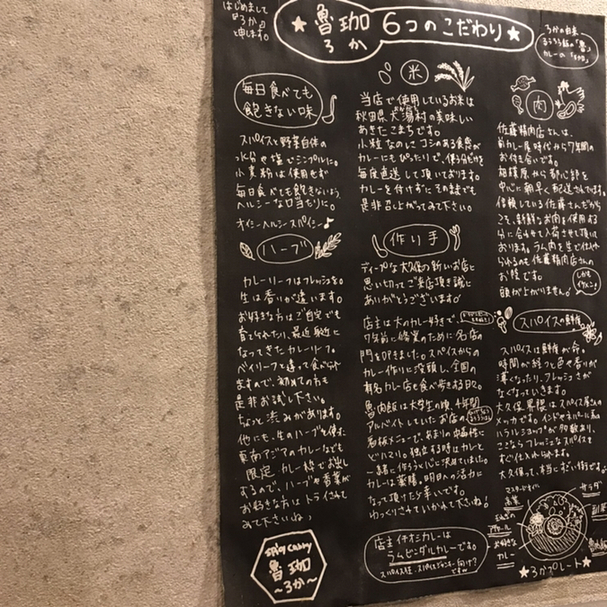 はじめまして
『ろか』と
申します。
★魯珈 6つのこだわり★
ろか
ろかの由来
カレーの「珈」
毎日食べても
飽きない味
スパイスと野菜自体の
水分や塩でシンプルに。
小麦粉は使用せず
毎日食べても飽きないよう
ヘルシーな口当たりに。
オイシーヘルシースパイシー♪
ハーブ
カレーリーフはフレッシュを。
生は香りが違います。
お好きな方はご自宅でも
育てられたり、最近身近に
なってきたカレーリーフ。
ベイリーフと違って食べられ
ますので、初めての方も
是非お試し下さい。
ちょっと渋みがあります。
他にも、生のハーブを使た
東南アジアのカレーなども
限定カレー枠でお出し
するので、ハーブや香菜が
お好きな方はトライされて
みて下さいね♪
spicy curry
魯珈
〜ろか〜
米
当店で使用しているお米は
秋田県大潟村の美味しい
あきたこまちです。
小粒なのにコシのある食感が
カレーにもぴったりで、使う分だけを
毎度直送して頂いております。
カレーを付けずにそのままでも
是非召し上がってみて下さい。
作り手
ディープな大久保の新しいお店と
思いきってご来店頂き誠に
ありがとうございます!
店主は大のカレー好きで、
7年前に修業のために名店の
門を叩きました。スパイスからの
カレー作りに没頭し、全国の
有名カレー店も食べ歩きする日々。
魯肉飯は大学生の頃、4年間
アルバイトしていたお店の
看板メニューで、あまりの中毒性に
どハマり。独立する時はカレーと
一緒に作ろうと心に決めていました。
カレーは薬膳。明日への活力に
なって頂けたら幸いです。
ゆっくりさせていかれて下さいね♪
店主イチオシカレーは
ラムビンダルカレーです。
肉
佐藤精肉店さんは、
前カレー屋時代から7年間の
お付き合いです。
相模原から都心部を
中心に朝早く配送されています。
信頼している佐藤さんだから
こそ、新鮮なお肉を使用する
分に合わせて入荷させて頂いて
おります。ラム肉も生で仕入れ
られるのも佐藤精肉店さんの
お陰です。
頭が上がりません。
しかも
イケメン♡
スパイスの鮮度
スパイスは鮮度が命。
時間が経つと色や香りが
薄くなったり、フレッシュさが
なくなっていきます。
大久保界隈はスパイス屋さんの
メッカです。インドやネパールに
ハラルショップが多数あり、
ここならフレッシュなスパイスを
すぐ仕入れられます。
大久保って、本当にすごい街ですよ
サラダ
お好きな
カレー
★ろかプレート★